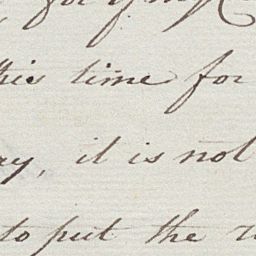 for
this time for
ay, it is not
to put the